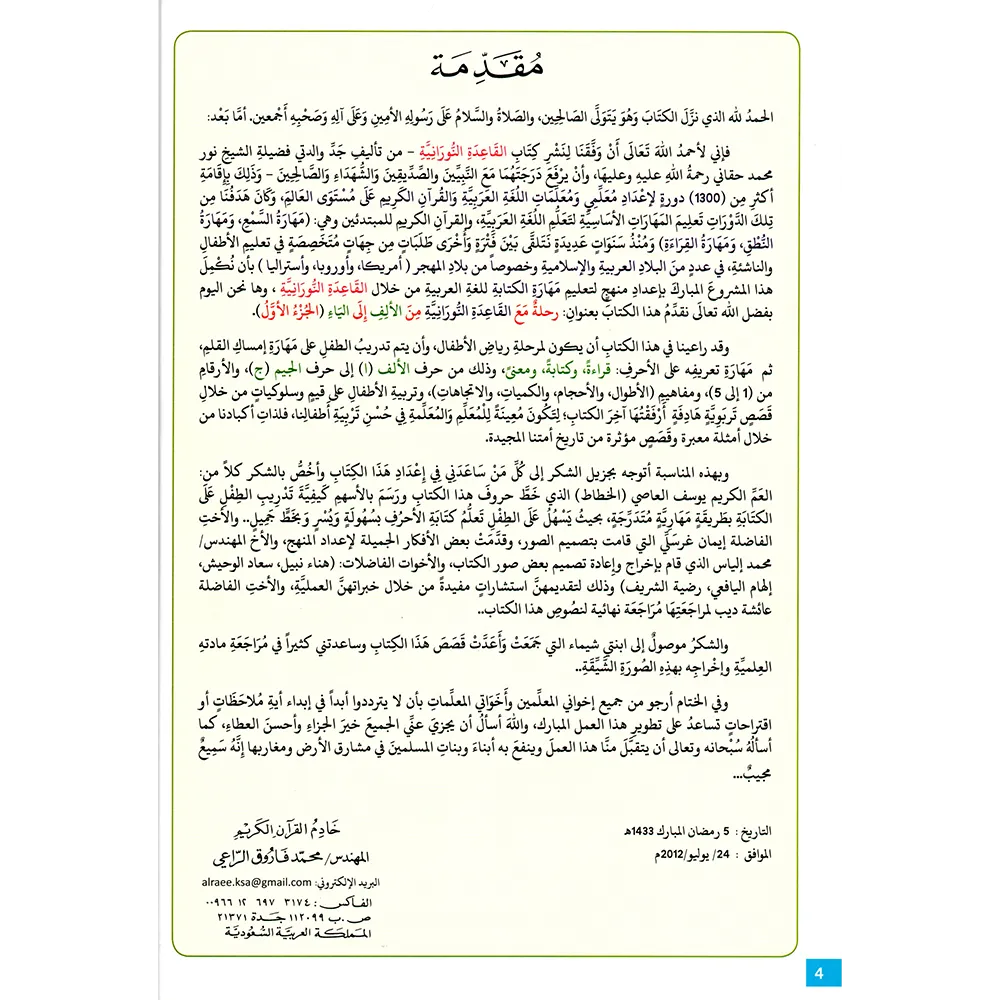 مُقَدِّمَة
الحمدُ لله الذي نزَّلَ الكتابَ وَهُوَ يَتَوَلَّى الصَالِحِين، والصَلاةُ والسَّلامُ عَلَى رَسُولِهِ الأمِينِ وَعَلَى آلِهِ وَصَحْبِهِ أَجْمعين. أمَّا بَعْد:
فإني لأحمدُ اللهَ تَعَالَى أَنْ وَفَّقَنَا لِنَشْرِ كِتَابِ القَاعِدَةِ النُّورَانِيَّةِ – من تأليفِ جَدِّ والدتي فضيلةِ الشيخِ نور
محمد حقاني رحمةُ اللهِ عليهِ وعليها، وأنْ يرْفَعَ دَرَجَتَهُمَا مَعَ النَّبِيِّينَ والصِّدِّيقِينَ والشُّهَدَاءِ وَالصَّالِحِينَ – وَذَلِكَ بِإقَامَةِ
أكثرِ مِن (1300) دورةٍ لإعْدَادِ مُعَلِّمِي وَمُعَلِّمَاتِ اللُّغَةِ العَرَبِيَّةِ والقُرآنِ الكَرِيمِ عَلَى مُسْتَوَى العَالَمِ، وَكَانَ هَدَفُنَا مِن
تِلكَ الدَّوْرَاتِ تَعلِيمَ المَهَارَاتِ الأسَاسِيَّةِ لتَعَلُّمِ اللُّغَةِ العَرَبِيَّةِ، والقرآنِ الكريمِ للمبتدئين وهي: (مَهَارَةُ السَّمْعِ، وَمَهَارَةُ
النُّطْقِ، وَمَهَارَةُ القِرَاءَةِ) وَمُنْذُ سَنَوَاتٍ عَدِيدَةٍ نَتَلَقَّى بَيْنَ فَتْرَةٍ وَأُخْرَى طَلَبَاتٍ مِن جِهَاتٍ مُتَخَصِّصَةٍ في تعليمِ الأطفالِ
والناشئةِ، في عددٍ منَ البلادِ العربيةِ والإسلاميةِ وخصوصاً من بلادِ المهجر (أمريكا، وأوروبا، وأستراليا ) بأن نُكْمِلَ
هذا المشروعَ المباركَ بإعدادِ منهجٍ لتعليمِ مَهَارَةِ الكتابةِ للغةِ العربيةِ من خلالِ القَاعِدَةِ النُّورَانِيَّةِ ، وها نحن اليوم
بفضل الله تعالَى نقدِّمُ هذا الكتابُ بعنوانِ: رحلةٌ مَعَ القَاعِدَةِ النُّورَانِيَّةِ مِنَ الألِفِ إلَى اليَاءِ (الجُزْءُ الأوَّلُ).
وقد راعينا في هذا الكتابِ أن يكون لمرحلةِ رياضِ الأطفال، وأن يتم تدريبُ الطفلِ على مَهَارَةِ إمساكِ القلمِ،
ثم مَهَارَةِ تعريفِه على الأحرفِ: قراءةً، وكتابةً، ومعنىً، وذلك من حرف الألف (ا) إلى حرف الجيم (ج)، والأرقامِ
من (1 إلى 5)، ومفاهيمِ (الأطوال، والأحجام، والكميات، والاتجاهات)، وتربيةِ الأطفالِ على قيمٍ وسلوكياتٍ من خلالِ
قَصَصٍ تَربَوِيَّةٍ هَادِفَةٍ أَرْفَقْتُهَا آخِرَ الكتابِ؛ لِتَكُونَ مُعِينَةً لِلْمُعَلِّمِ وَالمُعَلِّمَةِ فِي حُسْنِ تَرْبِيَةِ أطفَالِنا، فلذاتِ أكبادنا من
خلال أمثلة معبرة وقَصَصٍ مؤثرة من تاريخ أمتنا المجيدة.
وبهذه المناسبة أتوجه بجزيل الشكر إلى كُلِّ مَنْ سَاعَدَنِي فِي إِعْدَادِ هَذَا الكِتَابِ وأخُصُّ بالشكر كلاً من:
العَمِّ الكريم يوسف العاصي (الخطاط) الذي خَطَّ حروفَ هذا الكتابِ ورَسَمَ بالأسهم كَيفِيَّةَ تَدْرِيبِ الطِفْلِ عَلَى
الكتابَةِ بطَريقَةٍ مَهَاريَّةٍ مُتَدَرِّجَةٍ، بحيثُ يَسْهُلُ عَلَى الطِفْلِ تَعلُّمُ كتابَةِ الأحرُفِ بِسُهُولَةٍ وَيُسْرٍ وَبِخَطٍّ جَمِيلٍ.. والأختِ
الفاضلة إيمان غرسَلِّي التي قامت بتصميم الصور، وقدَّمَتْ بعض الأفكار الجميلة لإعداد المنهج، والأخ المهندس/
محمد إلياس الذي قام بإخراج وإعادة تصميم بعض صور الكتاب، والأخوات الفاضلات: (هناء نبيل، سعاد الوحيش،
إلهام اليافعي، رضية الشريف) وذلك لتقديمهنَّ استشاراتٍ مفيدةً من خلال خبراتهنَّ العمليَّةِ، والأختِ الفاضلة
عائشة ديب لمراجَعَتِهَا مُرَاجَعَة نهائية لنصُوصِ هذا الكتاب..
والشكرُ موصولٌ إلى ابنتي شيماء التي جَمَعَتْ وَأعَدَّتْ قَصَصَ هَذَا الكِتابِ وساعدتني كثيراً في مُرَاجَعَةِ مادتهِ
العِلميَّةِ وإخْراجِه بهذِهِ الصُورَةِ الشَّيِّقَةِ..
وفي الختام أرجو من جميع إخواني المعلِّمين وأَخَوَاتي المعلِّماتِ بأن لا يترددوا أبداً في إبداء أيةِ مُلاحَظَاتٍ أو
اقتراحاتٍ تساعدُ على تطويرِ هذا العمل المبارك، واللهَ أسألُ أن يجزيَ عنِّي الجميعَ خيرَ الجزاءِ وأحسنَ العطاءِ، كما
أسألُهُ سُبْحانه وتعالى أن يتقبَّلَ منَّا هذا العملَ وينفعَ به أبناءَ وبناتِ المسلمينَ في مشارق الأرض ومغاربها إنَّهُ سَمِيعٌ
مجيبٌ...
التاريخ : 5 رمضان المبارك 1433هـ
الموافق : 24/ يوليو/2012م
خَادِمُ القُرآنِ الكَرِيمِ
المهندس/ محمّد فاروق الرّاعي
البريد الإلكتروني: alraee.ksa@gmail.com
الفاكس : ٣١٧٤ ٦٩٧ ١٢ ٠٠٩٦٦
ص.ب ١١٢٠٩٩ جدة ٢١٣٧١
المملكة العربيّة السّعوديّة
4